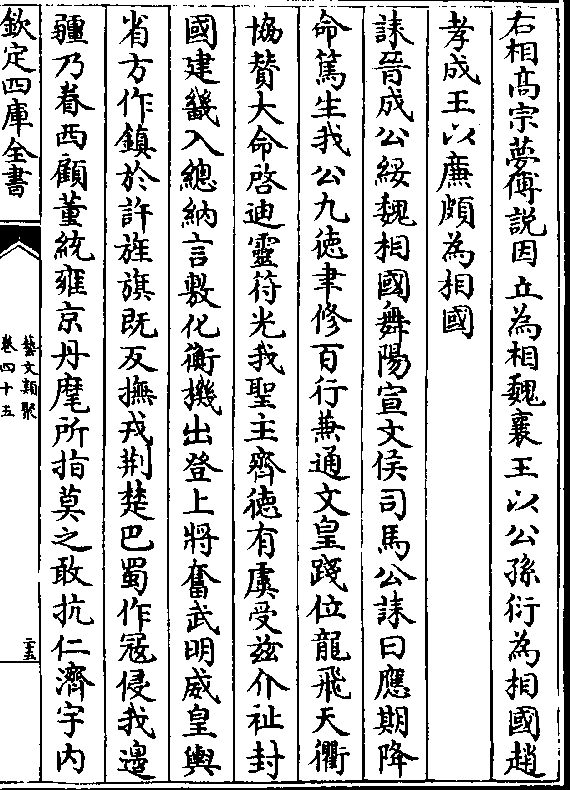 右相髙宗夢傅説因立為相魏襄王以公孫衍為相國趙
孝成王以亷頗為相國
誄晉成公綏魏相國舞陽宣文侯司馬公誄曰應期降
命篤生我公九徳聿修百行兼通文皇踐位龍飛天衢
協賛大命啓迪靈符光我聖主齊徳有虞受兹介祉封
國建畿入總納言敷化衡機出登上將奮武明威皇輿
省方作鎮於許旌旗既反撫戎荆楚巴蜀作冦侵我邊
疆乃眷西顧董統雍京丹麾所指莫之敢抗仁濟宇内
欽定四庫全書
藝文類聚
卷四十五
二五